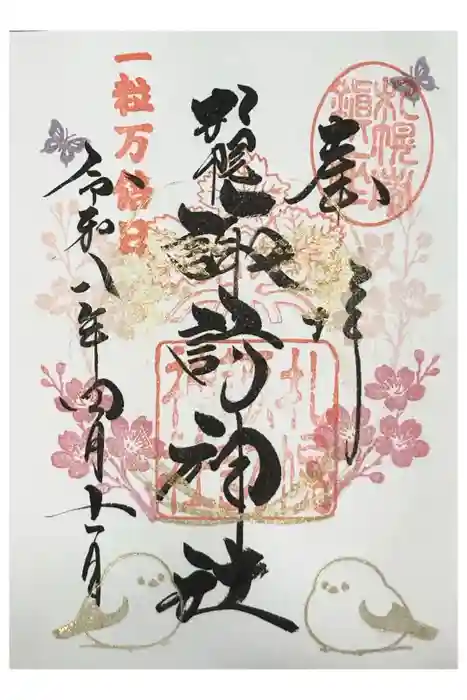 奉拝
札幌
諏訪神社
札幌
諏訪
神社
一粒万倍日
令和八年四月十一日